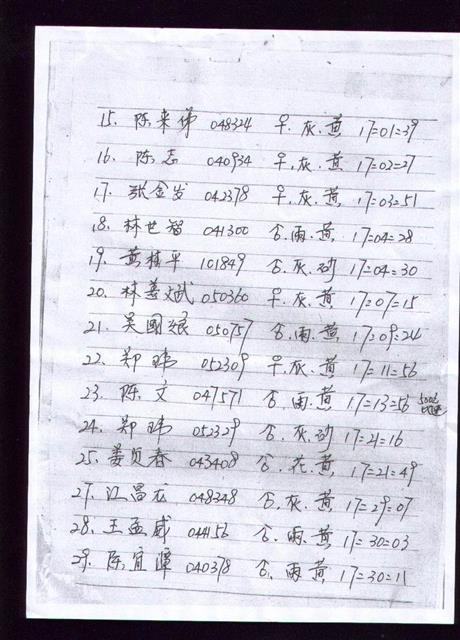 15. 陈来俤 048324 ♀.灰.黄 17=01=39
16. 陈志 040934 ♀.灰.黄 17=02=27
17. 张金发 042378 ♀.灰.黄 17=03=51
18. 林世智 041300 合.雨.黄 17=04=28
19. 黄桂平 101849 合.灰.砂 17=04=30
20. 林姜斌 050360 ♀.灰.黄 17=07=15
21. 吴国 050757 合.雨.黄 17=09=24
22. 郑 052309 ♀.灰.黄 17=11=56
23. 陈文 047571 合.雨.黄 17=13=56
24. 郑 052329 合.灰.砂 17=21=16
25. 姜贝春 043408 合.花.黄 17=21=49
27. 江昌 048348 合.灰.黄 17=29=07
28. 王孟威 044156 合.雨.黄 17=30=03
29. 陈宜 040378 合.雨.黄 17=30=11